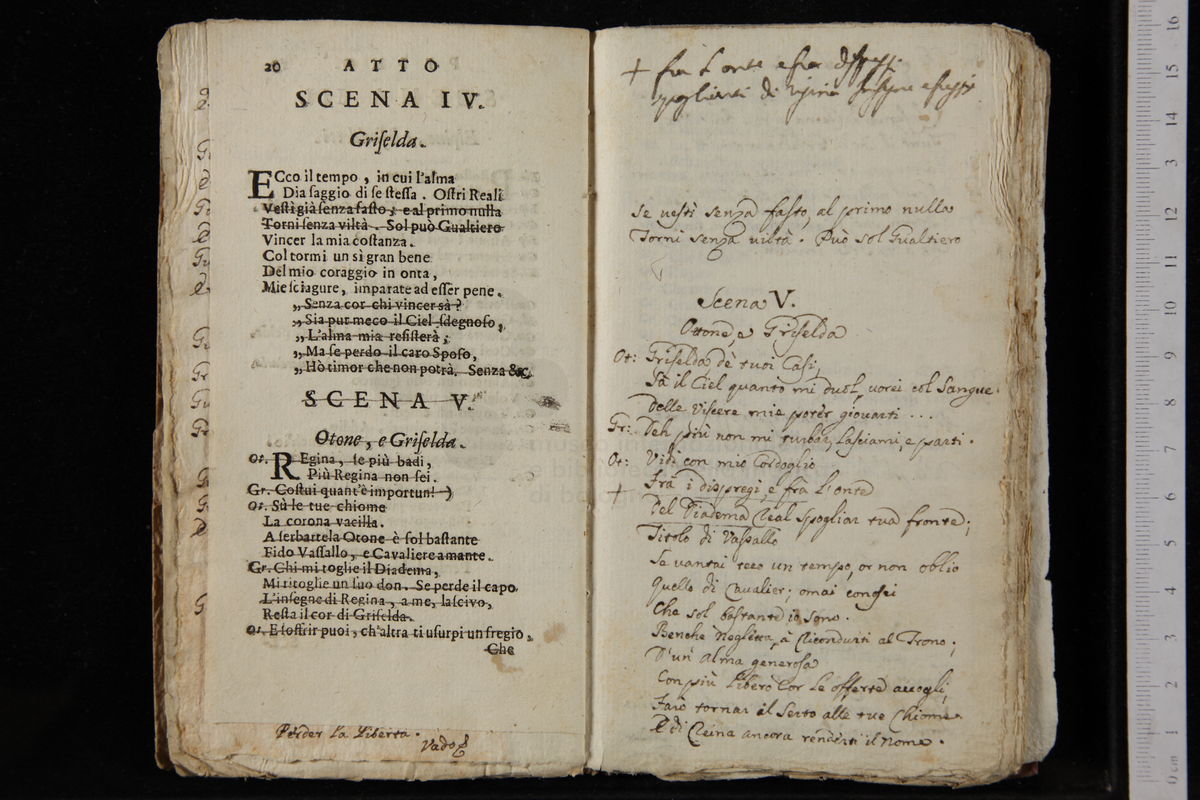 20 ATTO
SCENA IV.
Griſelda.
ECco il tempo, in cui l'alma
Dia ſaggio di ſe ſteſſa. Oſtri Reali
Veſtì già ſenza faſto; e al primo nulla
Torni ſenza viltà. Sol può Gualtiero
Vincer la mia coſtanza.
Col tormi un sì gran bene
Del mio coraggio in onta,
Mie ſciagure, imparate ad eſſer pene.
„Senza cor chi vincer sà?
„Sia pur meco il Ciel ſdegnoſo,
„L'alma mia reſiſterà;
„Ma ſe perdo il caro Spoſo,
„Hò timor che non potrà. Senza &c.
SCENA V.
Otone, e Griſelda.
Ot. REgina, ſe più badi,
Più Regina non ſei.
Gr. Coſtui quant'è importun! )
Ot. Sù le tue chiome
La corona vacilla.
A ſerbartela Otone è ſol baſtante
Fido Vaſſallo, e Cavaliere amante.
Gr. Chi mi toglie il Diadema,
Mi ritoglie un ſuo don. Se perde il capo
L'inſegne di Regina, a me, laſcivo,
Reſta il cor di Griſelda.
Ot. E ſoffrir puoi, ch'altra ti uſurpi un fregio,
Che
Perder la libertà.
Vado
+ fra l'onte e fra
di
Se vestì senza fasto, al primo nulla
Torni senza viltà. Può sol Gualtiero
Scena V.
Ottone, e Griselda
Ot: Griselda dè tuoi Casi,
Sà il Ciel quanto mi duol, vorei col Sangue
Delle Viscere mie poter giovarti ...
Gr: Deh più non mi turbar, lasciami, e parti.
Ot: Vidi con mio Cordoglio
+ Frà i dispregi, e frà l'onte
Del Diadema Real spogliar tua fronte;
Titolo di Vassallo
Se vantai teco un tempo, or non oblio
Quello di Cavalier; omai conosci
Che sol bastante io sono.
Benche Negletta, à Ricondurti al Trono;
D'un' alma generosa
Con più libero Cor le offerte accogli,
Farò tornar il Serto alle tue Chiome
E di Reina ancora renderti il nome.